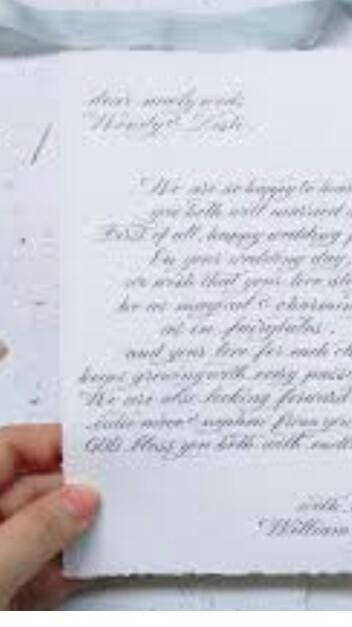 dear newlyweds
Wendy &
We are so happy to hear
you both will married
First of all, happy wedding
In your wedding day,
we wish that your love
be as magical & charming
as in fairytales.
and your love for each
keeps growing with every passing
We are also looking forward
niece nephew from you
GOD bless you both with
with
William